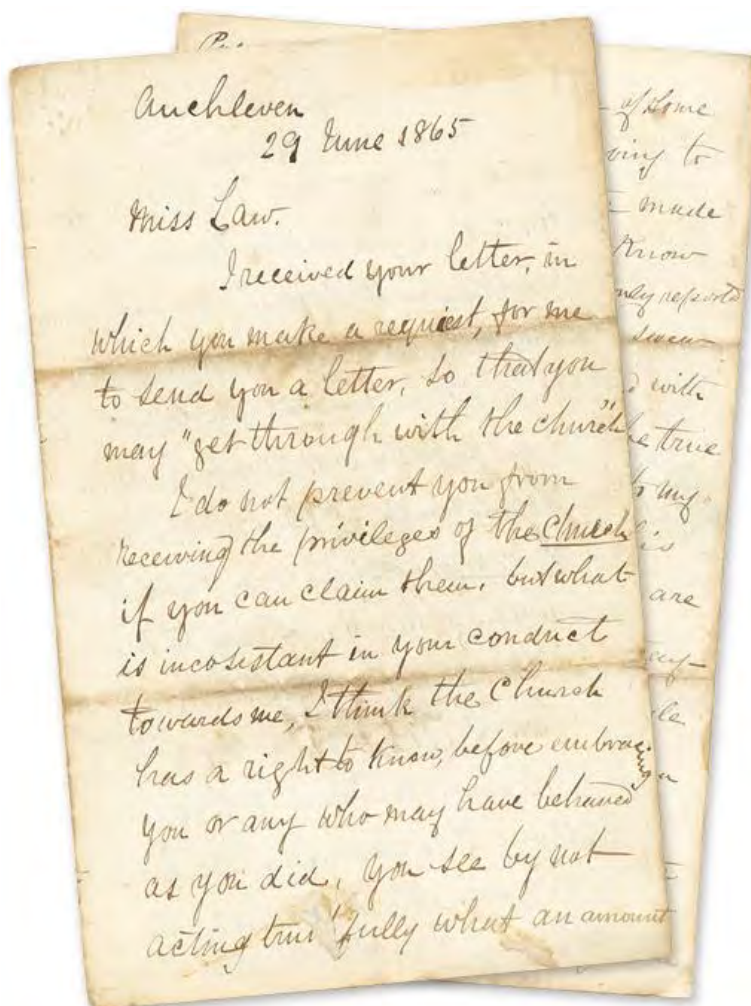 Auchleven
29 June 1865
Miss Law.
I received your letter, in
which you make a request, for me
to send you a letter, so that you
may "get through with the church"
I do not prevent you from
receiving the privileges of the Church
if you can claim them. but what
is incosistant in your conduct
towards me, I think the Church
has a right to know, before embracing
you or any who may have behaved
as you did, you see by not
acting truthfully what an amount
of some
ving to
made
know
only reported
swear
d with
he true
to my
is
are